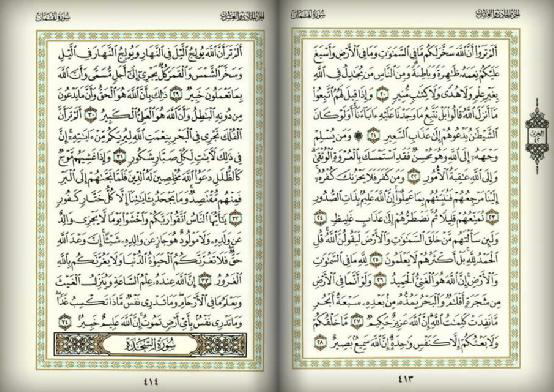 الجزء الحادي والعشرون
سورة لقمان
ألم تروا أن الله سخر لكم ما في السموت وما في الأرض وأسبغ
عليكم نعمه ظهرة وباطنة ومن الناس من يجدل في الله
بغير علم ولا هدى ولا كتب منير ٢٠ وإذا قيل لهم اتبعوا
ما أنزل الله قالوا بل نتبع ما وجدنا عليه ءاباءنا أولو كان
الشيطن يدعوهم إلى عذاب السعير ٢١ ۞ ومن يسلم
وجهه إلى الله وهو محسن فقد استمسك بالعروة الوثقى
وإلى الله عقبة الأمور ٢٢ ومن كفر فلا يحزنك كفره
إلينا مرجعهم فننبئهم بما عملوا إن الله عليم بذات الصدور
٢٣ نمتعهم قليلا ثم نضطرهم إلى عذاب غليظ ٢٤
ولئن سألتهم من خلق السموت والأرض ليقولن الله قل
الحمد لله بل أكثرهم لا يعلمون ٢٥ لله ما في السموت
والأرض إن الله هو الغني الحميد ٢٦ ولو أنما في الأرض
من شجرة أقلم والبحر يمده من بعده سبعة أبحر
ما نفدت كلمت الله إن الله عزيز حكيم ٢٧ ما خلقكم
ولا بعثكم إلا كنفس وحدة إن الله سميع بصير ٢٨
٤١٣
الحزب
٤٢
الجزء الحادي والعشرون
سورة لقمان
ألم تر أن الله يولج اليل في النهار ويولج النهار في اليل
وسخر الشمس والقمر كل يجري إلى أجل مسمى وأن الله
بما تعملون خبير ٢٩ ذلك بأن الله هو الحق وأن ما يدعون
من دونه البطل وأن الله هو العلي الكبير ٣٠ ألم تر أن
الفلك تجري في البحر بنعمت الله ليريكم من ءايته إن
في ذلك لأيت لكل صبار شكور ٣١ وإذا غشيهم موج
كالظلل دعوا الله مخلصين له الدين فلما نجىهم إلى البر
فمنهم مقتصد وما يجحد بأيتنا إلا كل ختار كفور
٣٢ يأيها الناس اتقوا ربكم واخشوا يوما لا يجزي والد
عن ولده ولا مولود هو جاز عن والده شيئا إن وعد الله
حق فلا تغرنكم الحيوة الدنيا ولا يغرنكم بالله
الغرور ٣٣ إن الله عنده علم الساعة وينزل الغيث
ويعلم ما في الأرحام وما تدري نفس ماذا تكسب غدا
وما تدري نفس بأي أرض تموت إن الله عليم خبير ٣٤
سورة السجدة
٤١٤